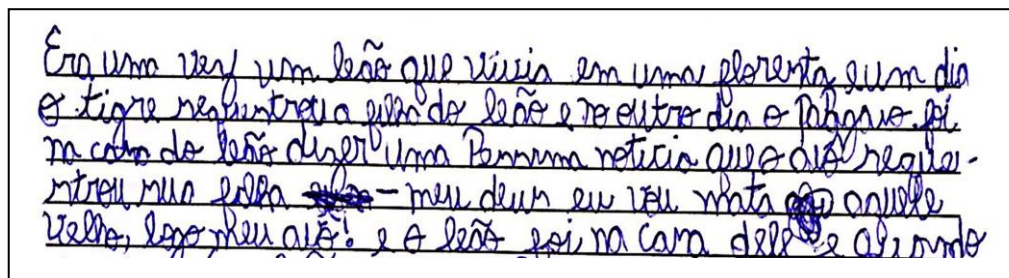 Era uma vez um leão que vivia em uma floresta e um dia
o tigre sequintrou a filha do leão e no outro dia o Papagaio foi
na casa do leão dizer uma Pessima noticia que o avô seques-
ntrou sua filha - meu deus eu vou mata aquele
velho, logo meu avô! e o leão foi na casa dele e